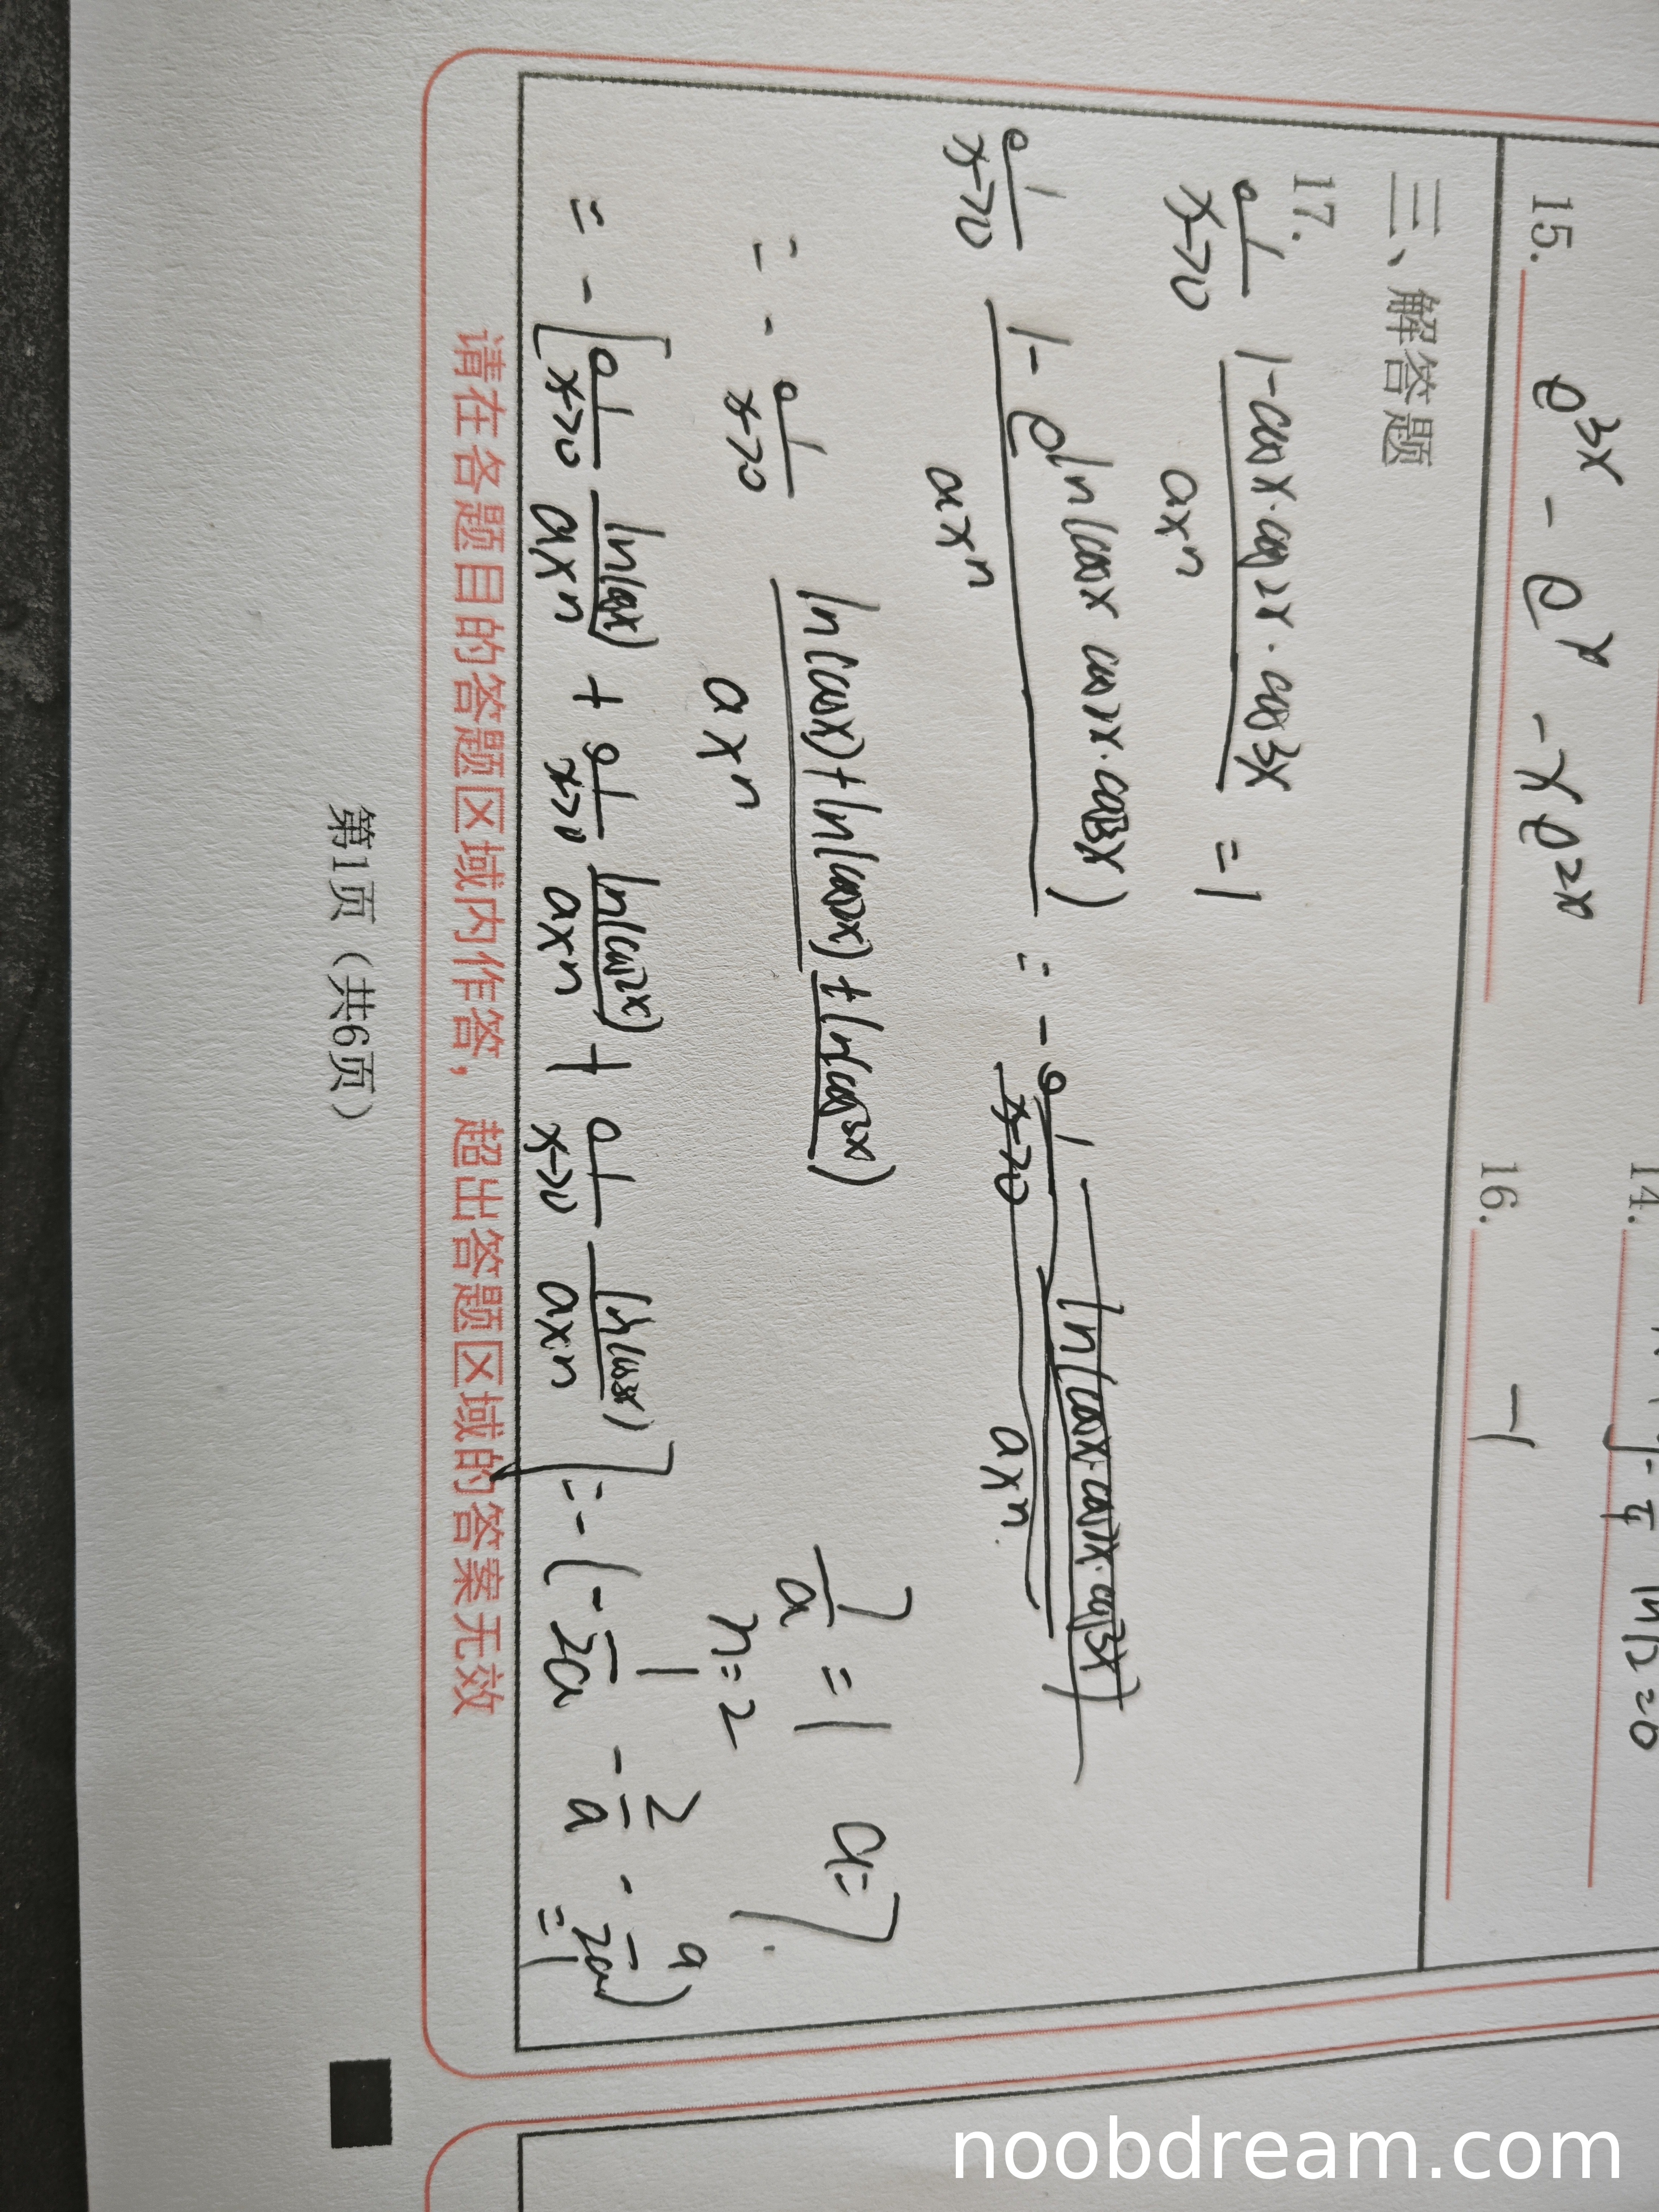 14. 
- π/4 ln2 = 0
15. e^{3x} - e^x - xe^{2x}
16. -1
三、解答题
17.
lim x→0 (1-cosx·cos2x·cos3x)/(ax^n) = 1
lim x→0 (1-e^{ln(cosx cos2x·cos3x)})/(ax^n) = - lim x→0 ln(cosx·cos2x·cos3x)/(ax^n)
= - lim x→0 (ln(cosx)+ln(cos2x)+ln(cos3x))/(ax^n)
7/a = 1 a=7.
n=2
= - [lim x→0 ln(cosx)/(ax^n) + lim x→0 ln(cos2x)/(ax^n) + lim x→0 ln(cos3x)/(ax^n)] = - (- 1/(2a) - 2/a - 9/(2a)) = 1
请在各题目的答题区域内作答，超出答题区域的答案无效
第1页（共6页）
noobdream.com